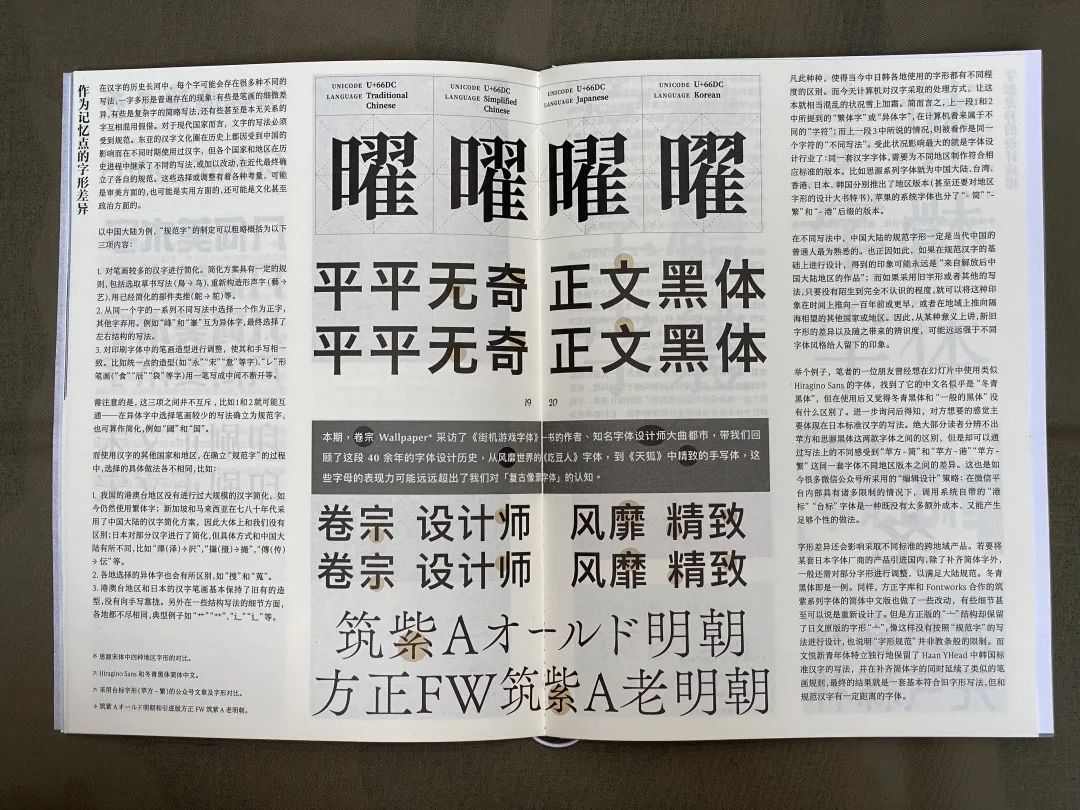 作为记忆点的字形差异
在汉字的历史长河中，每个字可能会存在很多种不同的
写法，一字多形是普遍存在的现象：有些是笔画的细微差
异，有些是复杂字的简略写法，还有些甚至是本无关系的
字互相混用假借。对于现代国家而言，文字的写法必须
受到规范。东亚的汉字文化圈在历史上都因受到中国的
影响而在不同时期使用过汉字，但各个国家和地区在历
史进程中继承了不同的写法，或加以改动，在近代最终确
立了各自的规范。这些选择或调整有着各种考量，可能
是审美方面的，也可能是实用方面的，还可能是文化甚至
政治方面的。
以中国大陆为例，“规范字”的制定可以粗略概括为以下
三项内容：
1. 对笔画较多的汉字进行简化。简化方案具有一定的规
则，包括选取草书写法（鳥→鸟），重新构造形声字（藝→
艺），用已经简化的部件类推（鴕→鸵）等。
2. 从同一个字的一系列不同写法中选择一个作为正字，
其他字弃用。例如“峰”和“峯”互为异体字，最终选择了
左右结构的写法。
3. 对印刷字体中的笔画造型进行调整，使其和手写相一
致。比如统一点的造型（如“永”“宋”“意”等字），“レ”形
笔画（“食”“辰”“袋”等字）用一笔写成中间不断开等。
需注意的是，这三项之间并不互斥，比如1和2就可能互
通——在异体字中选择笔画较少的写法确立为规范字，
也可算作简化，例如“國”和“国”。
而使用汉字的其他国家和地区，在确立“规范字”的过程
中，选择的具体做法各不相同，比如：
1. 我国的港澳台地区没有进行过大规模的汉字简化，如
今仍然使用繁体字；新加坡和马来西亚在七八十年代采
用了中国大陆的汉字简化方案，因此大体上和我们没有
区别；日本对部分汉字进行了简化，但具体方式和中国大
陆有所不同，比如“澤（泽）→沢”，“攝（摄）→摂”，“傳（传）
→伝”等。
2. 各地选择的异体字也会有所区别，如“搜”和“蒐”。
3. 港澳台地区和日本的汉字笔画基本保持了旧有的造
型，没有向手写靠拢。另外在一些结构写法的细节方面，
各地都不尽相同，典型例子如“艹”“艹”，“辶”“辶”等。
思源宋体中四种地区字形的对比。
Hiragino Sans 和冬青黑体简体中文。
采用台标字形（苹方-繁）的公众号文章及字形对比。
筑紫 Aオールド明朝和引进版方正 FW 筑紫 A 老明朝。
UNICODE U+66DC
LANGUAGE Traditional
Chinese
UNICODE U+66DC
LANGUAGE Simplified
Chinese
UNICODE U+66DC
LANGUAGE Japanese
UNICODE U+66DC
LANGUAGE Korean
曜 曜 曜 曜
平平无奇 正文黑体
平平无奇 正文黑体
19 20
本期，卷宗 Wallpaper* 采访了《街机游戏字体》一书的作者、知名字体设计师大曲都市，带我们回
顾了这段 40 余年的字体设计历史，从风靡世界的《吃豆人》字体，到《天狐》中精致的手写体，这
些字母的表现力可能远远超出了我们对「复古像素字体」的认知。
卷宗 设计师 风靡 精致
卷宗 设计师 风靡 精致
筑紫Aオールド明朝
方正FW筑紫A老明朝
凡此种种，使得当今中日韩各地使用的字形都有不同程
度的区别。而今天计算机对汉字采取的处理方式，让这
本就相当混乱的状况雪上加霜。简而言之，上一段1和2
中所提到的“繁体字”或“异体字”，在计算机看来属于不
同的“字符”；而上一段3中所说的情况，则被看作是同一
个字符的“不同写法”。受此状况影响最大的就是字体设
计行业了：同一套汉字字体，需要为不同地区制作符合相
应标准的版本。比如思源系列字体就为中国大陆、台湾、
香港、日本、韩国分别推出了地区版本（甚至还要对地区
字形的设计大书特书），苹果的系统字体也分了“-简”“-
繁”和“-港”后缀的版本。
在不同写法中，中国大陆的规范字形一定是当代中国的
普通人最为熟悉的。也正因如此，如果在规范汉字的基
础上进行设计，得到的印象可能永远是“来自解放后中
国大陆地区的作品”；而如果采用旧字形或者其他的写
法，只要没有陌生到完全不认识的程度，就可以将这种印
象在时间上推向一百年前或更早，或者在地域上推向隔
海相望的其他国家或地区。因此，从某种意义上讲，新旧
字形的差异以及随之带来的辨识度，可能远远强于不同
字体风格给人留下的印象。
举个例子，笔者的一位朋友曾经想在幻灯片中使用类似
Hiragino Sans 的字体，找到了它的中文名似乎是“冬青
黑体”，但在使用后又觉得冬青黑体和“一般的黑体”没
有什么区别了。进一步询问后得知，对方想要的感觉主
要体现在日本标准汉字的写法。绝大部分读者分辨不出
苹方和思源黑体这两款字体之间的区别，但是却可以通
过写法上的不同感受到“苹方-简”和“苹方-港”“苹方-
繁”这同一套字体不同地区版本之间的差异。这也是如
今很多微信公众号所采用的“编辑设计”策略：在微信平
台内部具有诸多限制的情况下，调用系统自带的“港
标”“台标”字体是一种既没有太多额外成本，又能产生
足够个性的做法。
字形差异还会影响采取不同标准的跨地域产品。若要将
某套日本字体厂商的产品引进国内，除了补齐简体字外，
一般还需对部分字形进行调整，以满足大陆规范。冬青
黑体即是一例。同样，方正字库和 Fontworks 合作的筑
紫系列字体的简体中文版也做了一些改动，有些细节甚
至可以说是重新设计了。但是方正版的“亠”结构却保留
了日文原版的字形“亠”，像这样没有按照“规范字”的写
法进行设计，也说明“字形规范”并非教条般的限制。而
文悦新青年体特立独行地保留了 Haan YHead 中韩国标
准汉字的写法，并在补齐简体字的同时延续了类似的笔
画规则，最终的结果就是一套基本符合旧字形写法，但和
规范汉字有一定距离的字体。